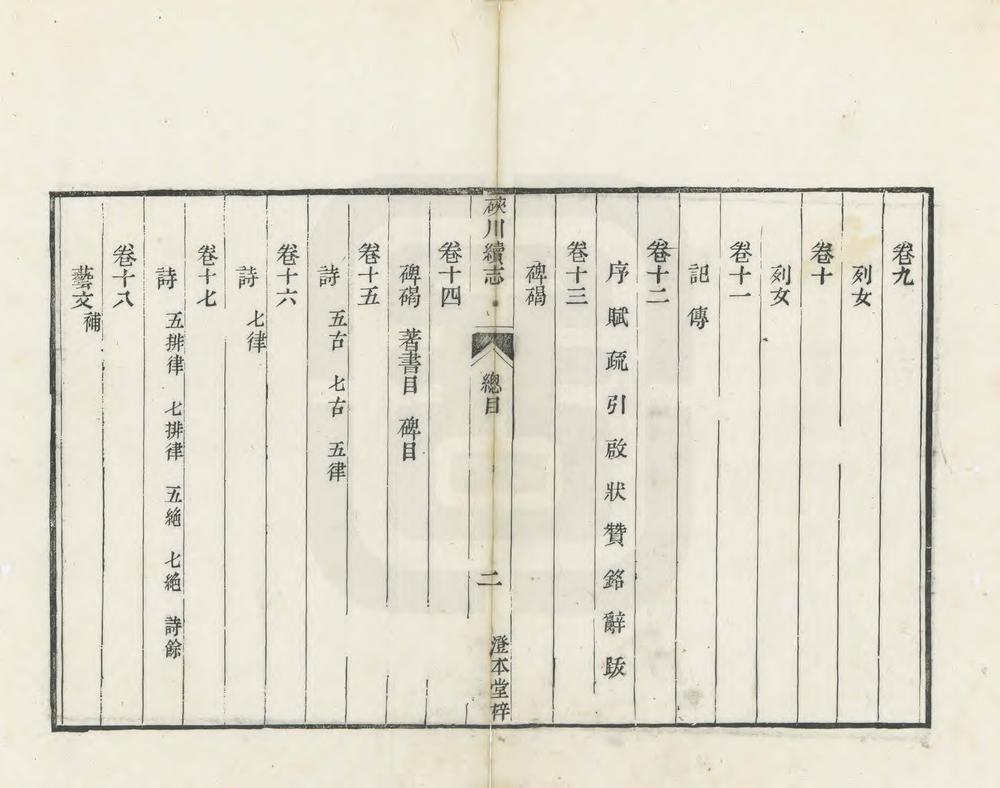 卷九
列女
卷十
列女
卷十一
記 傳
卷十二
序 賦 疏 引 啟 狀 贊 銘 辭 跋
卷十三
碑碣
硤川續志
總目
二
澄本堂梓
卷十四
碑碣 著書目 碑目
卷十五
詩 五古 七古 五律
卷十六
詩 七律
卷十七
詩 五排律 七排律 五絕 七絕 詩餘
卷十八
藝文補